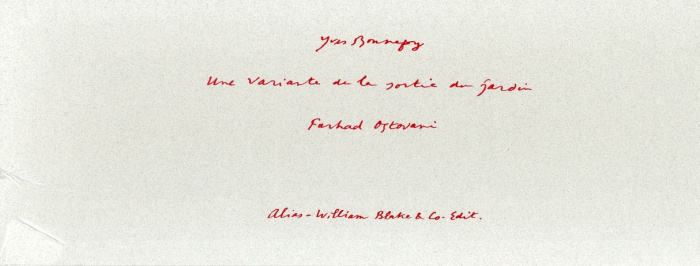 Yves Bonnefoy
Une variante de la sortie du jardin
Farhad Ostovani
Alias - William Blake & Co. Edit.